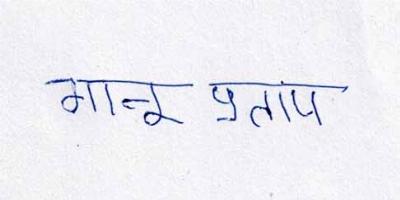 भानू प्रताप